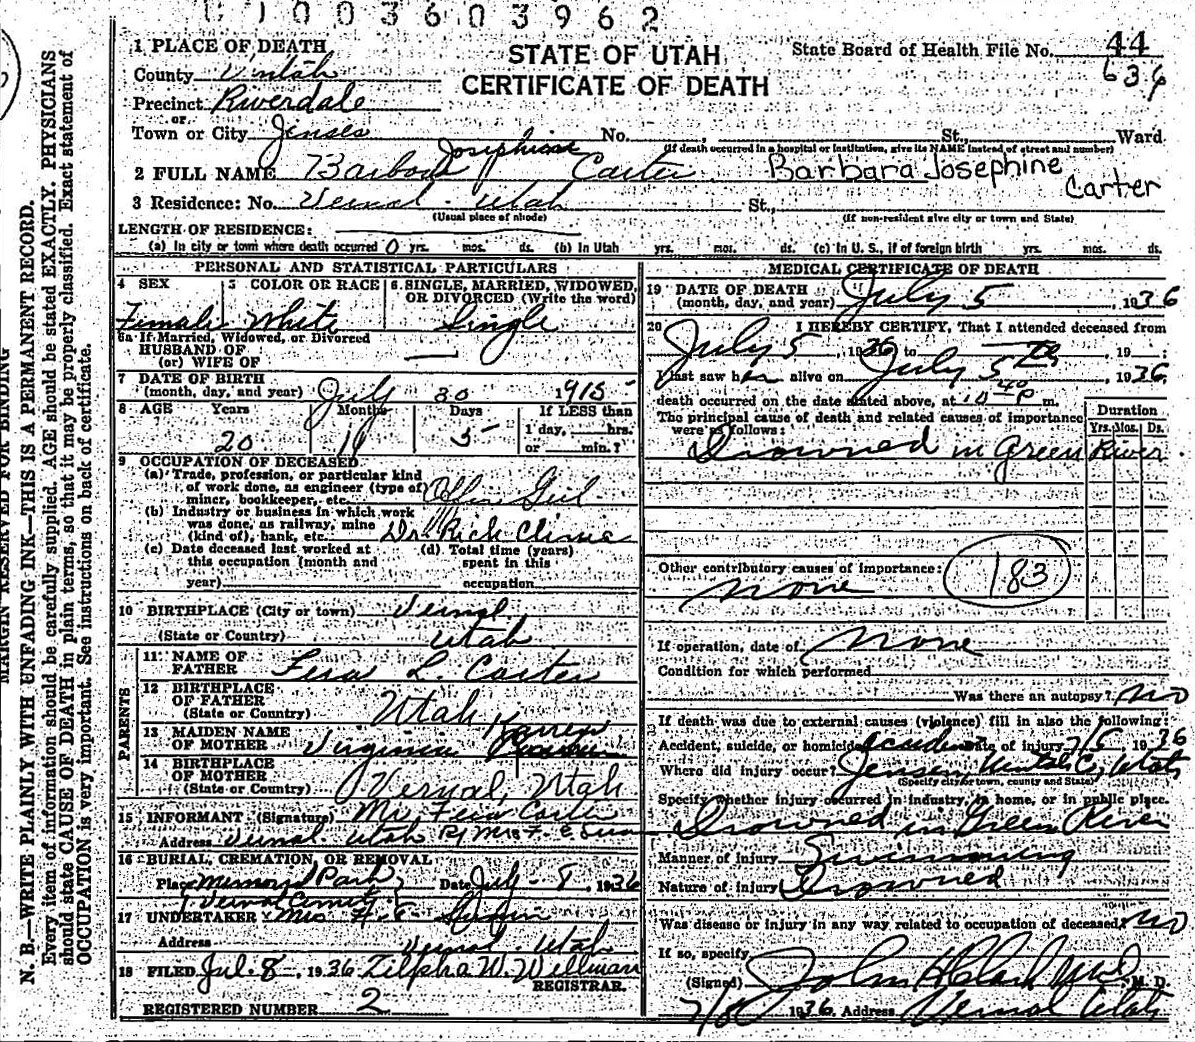 11003603962
STATE OF UTAH
CERTIFICATE OF DEATH
State Board of Health File No. 44
636
1 PLACE OF DEATH
County Uintah
Precinct Riverdale
or
Town or City Jensen No. St., Ward
(If death occurred in a hospital or institution, give its NAME instead of street and number)
2 FULL NAME Barbara Josephine Carter Barbara Josephine Carter
3 Residence: No. Vernal Utah St.,
(Usual place of abode) (If non-resident give city or town and State)
LENGTH OF RESIDENCE:
(a) In city or town where death occurred 0 yrs. mos. ds. (b) In Utah yrs. mos. ds. (c) In U. S., if of foreign birth yrs. mos. ds.
PERSONAL AND STATISTICAL PARTICULARS
4 SEX 5 COLOR OR RACE 6 SINGLE, MARRIED, WIDOWED, OR DIVORCED (Write the word)
Female White Single
6a If Married, Widowed, or Divorced
HUSBAND OF
(or) WIFE OF
7 DATE OF BIRTH
(month, day, and year) July 30 1915
8 AGE Years Months Days If LESS than
1 day, hrs.
or min.?
20 11 5
9 OCCUPATION OF DECEASED
(a) Trade, profession, or particular kind
of work done, as engineer (type of)
miner, bookkeeper, etc. Office Girl
(b) Industry or business in which work
was done, as railway, mine
(kind of), bank, etc. Dr. Rich Clinic
(c) Date deceased last worked at
this occupation (month and
year)
(d) Total time (years)
spent in this
occupation
10 BIRTHPLACE (City or town) Vernal
(State or Country) Utah
PARENTS
11 NAME OF
FATHER L. Carter
12 BIRTHPLACE
OF FATHER
(State or Country) Utah
13 MAIDEN NAME
OF MOTHER Virginia Karren
14 BIRTHPLACE
OF MOTHER
(State or Country) Vernal, Utah
15 INFORMANT (Signature) Mr. Carter
Address Vernal Utah By Mrs F. E.
16 BURIAL, CREMATION, OR REMOVAL
Place Memorial Park Date July 8, 1936
Vernal
17 UNDERTAKER Mrs
Address Vernal Utah
18 FILED Jul. 8, 1936 Zilpha W. Willman
REGISTRAR.
REGISTERED NUMBER 2
MEDICAL CERTIFICATE OF DEATH
19 DATE OF DEATH
(month, day, and year) July 5 1936
20 I HEREBY CERTIFY, That I attended deceased from
July 5, 1936 to 5th, 19 ;
I last saw her alive on July 5th, 1936
death occurred on the date stated above, at 10 40 P m.
The principal cause of death and related causes of importance
were as follows:
Duration
Yrs. Mos. Ds.
Drowned in Green River
Other contributory causes of importance:
none
183
If operation, date of none
Condition for which performed
Was there an autopsy? No
If death was due to external causes (violence) fill in also the following:
Accident, suicide, or homicide accident Date of injury 7/5 1936
Where did injury occur? Jensen Uintah Co, Utah
(Specify city or town, county and State)
Specify whether injury occurred in industry, in home, or in public place.
Drowned in Green River
Manner of injury Swimming
Nature of injury Drowned
Was disease or injury in any way related to occupation of deceased? No
If so, specify
(Signed) John H Clark M.D. M. D.
1936 Address Vernal Utah
MARGIN RESERVED FOR BINDING
N. B.—WRITE PLAINLY WITH UNFADING INK—THIS IS A PERMANENT RECORD.
Every item of information should be carefully supplied. AGE should be stated EXACTLY. PHYSICIANS
should state CAUSE OF DEATH in plain terms, so that it may be properly classified. Exact statement of
OCCUPATION is very important. See instructions on back of certificate.